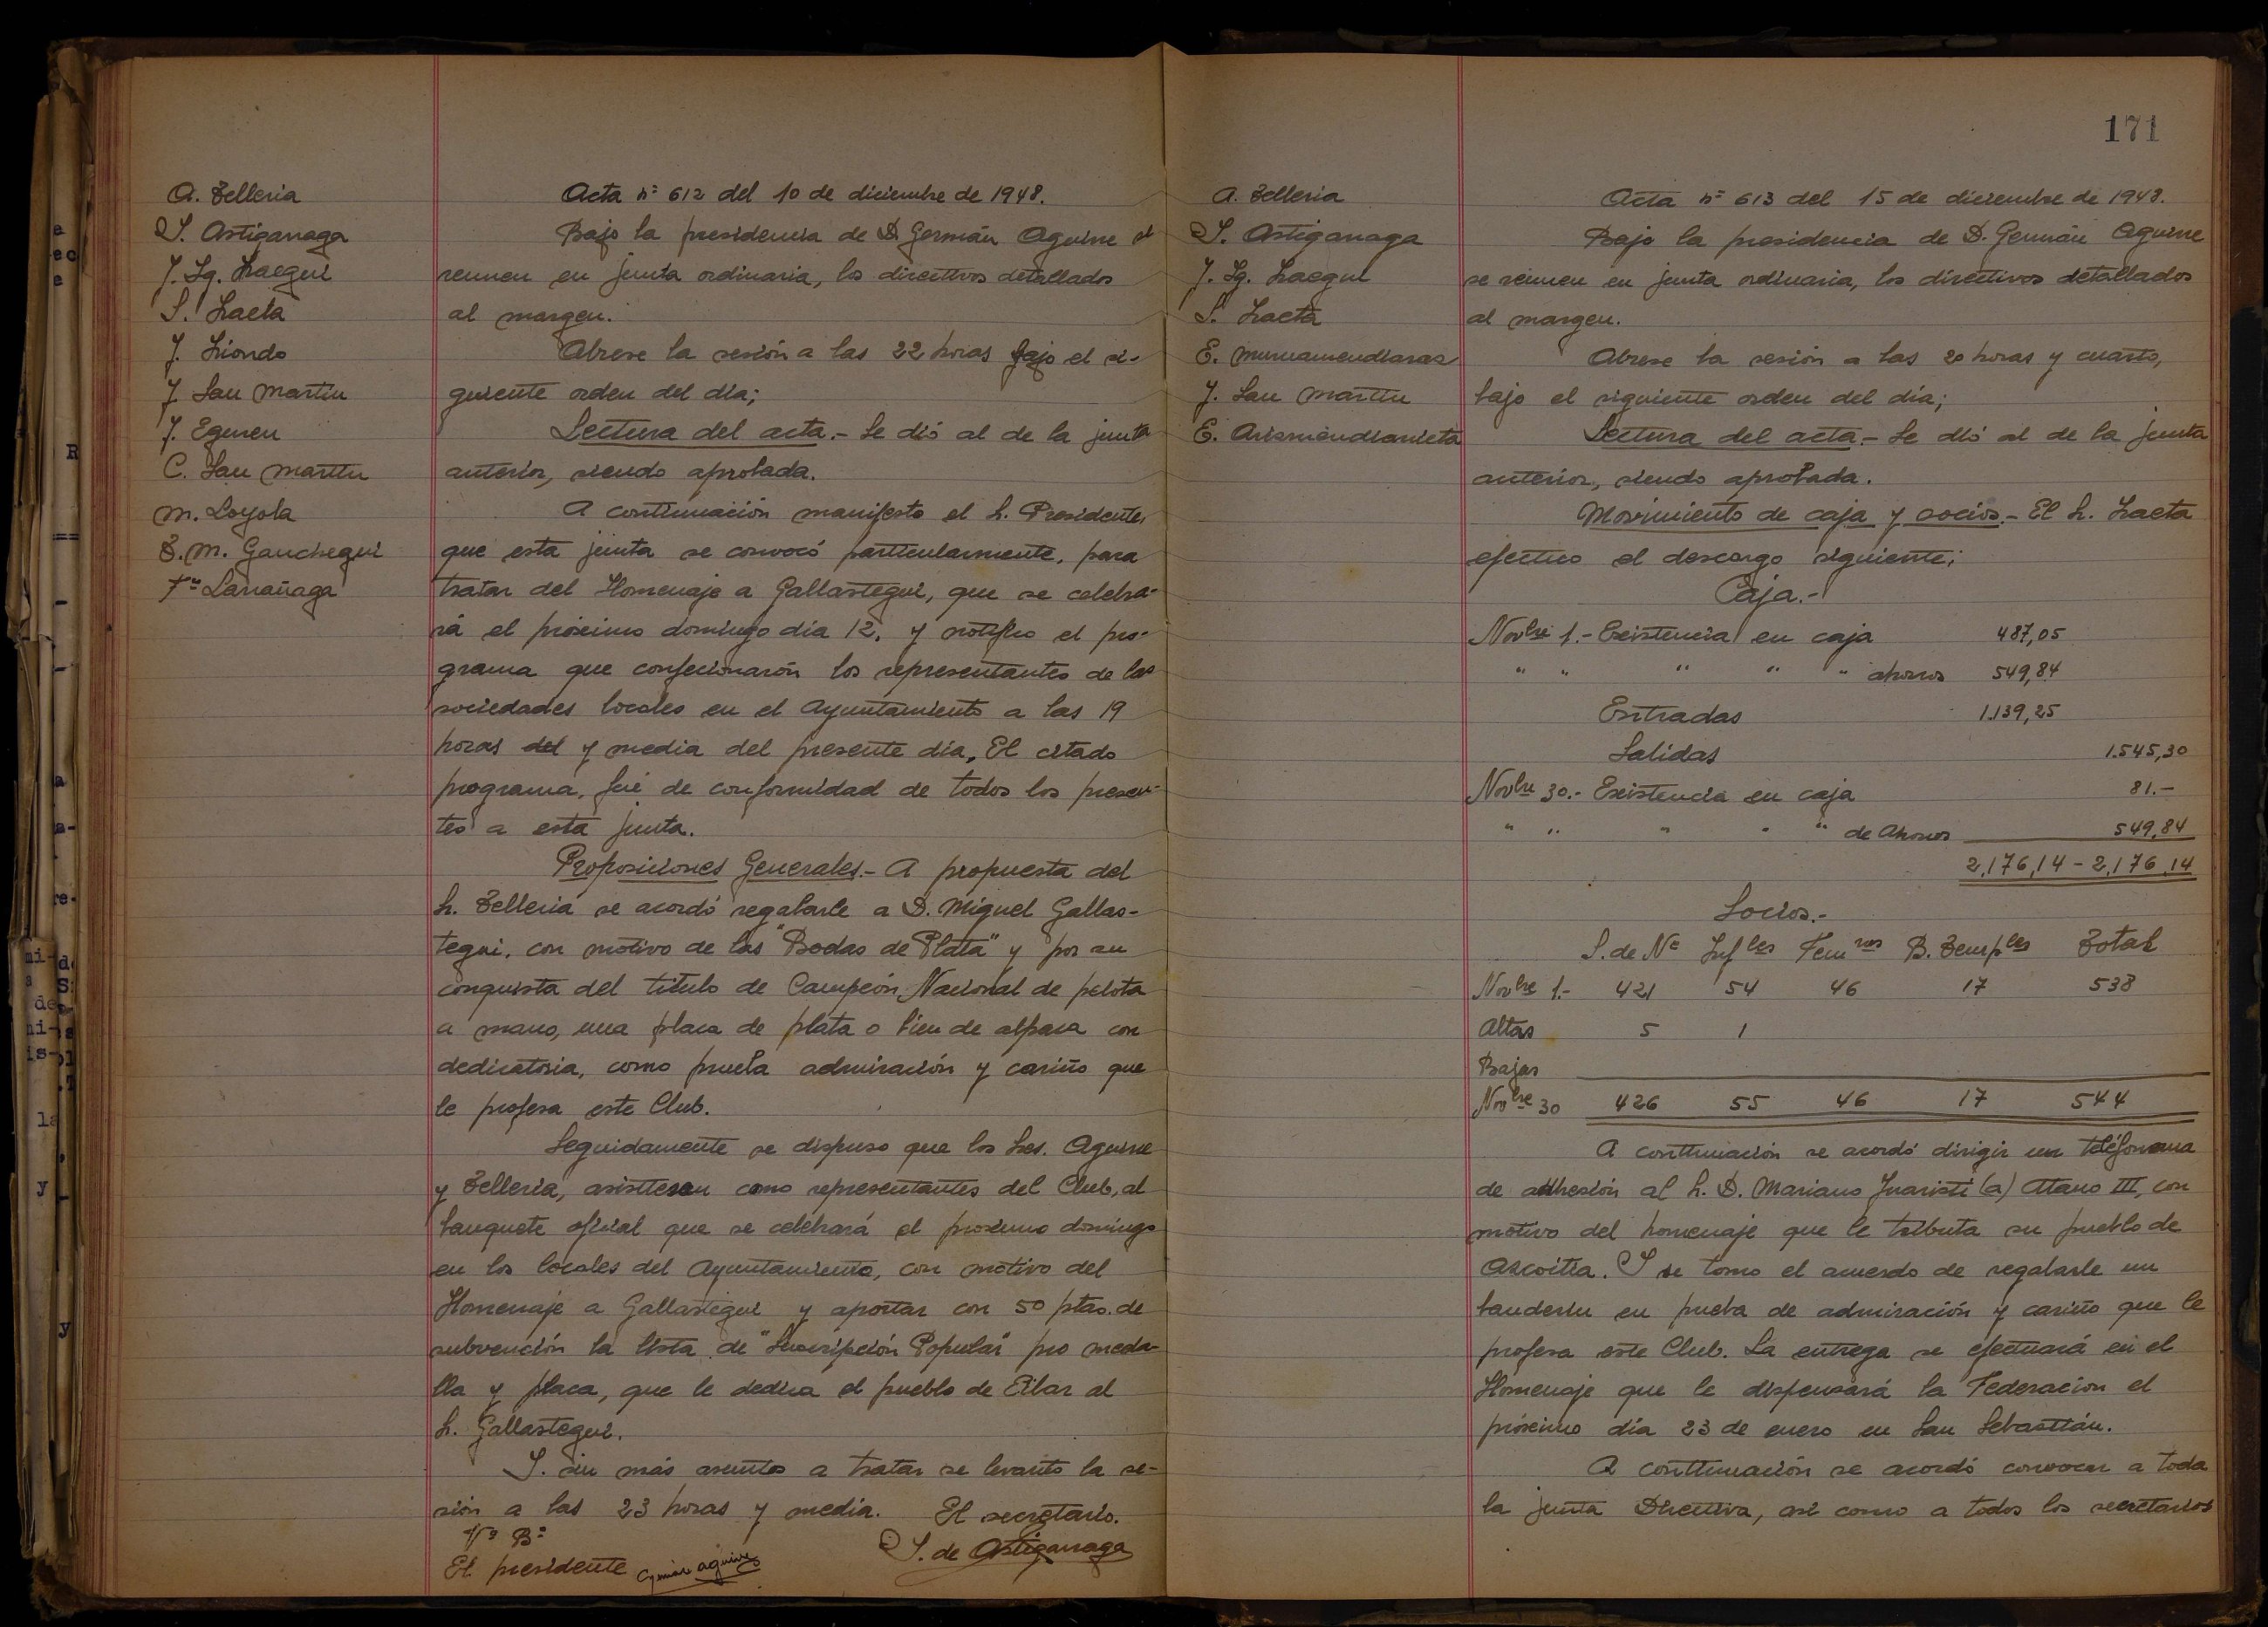 A. Telleria
S. Astiganaga
J. Ig. Iraegui
S. Iraeta
J. Iriondo
J. San Martin
J. Eguren
C. San Martin
M. Loyola
T. M. Ganchegui
Fco Larrañaga
Acta nº 612 del 10 de diciembre de 1948.
Bajo la presidencia de D German Aguirre se
reunen en junta ordinaria, los directivos detallados
al margen.
Abrese la sesión a las 22 horas bajo el si-
guiente orden del día;
Lectura del acta.- Se dió al de la junta
anterior, siendo aprobada.
A continuación manifesto el S. Presidente,
que esta junta se convocó particularmente, para
tratar del Homenaje a Gallastegui, que se celebra-
rá el próximo domingo dia 12, y notifico el pro-
grama que confecionarón los representantes de las
sociedades locales en el Ayuntamiento a las 19
horas del y media del presente día. El citado
programa, fué de conformidad de todos los presen-
tes a esta junta.
Proposiciones Generales.- A propuesta del
S. Telleria se acordó regalarle a D. Miguel Gallas-
tegui, con motivo de las "Bodas de Plata" y por su
conquista del titulo de Campeón Nacional de pelota
a mano, una placa de plata o bien de alpaca con
dedicatoria, como prueba admiración y cariño que
le profesa este Club.
Seguidamente se dispuso que los Sres. Aguirre
y Telleria, asistiesen como representantes del Club, al
banquete oficial que se celebrará el proximo domingo
en los locales del Ayuntamiento, con motivo del
Homenaje a Gallastegui y aportar con 50 ptas. de
subvención la lista de "Suscripción Popular" pro meda-
lla y placa, que le dedica el pueblo de Eibar al
S. Gallastegui.
Y. sin más asuntos a tratar se levanto la se-
sión a las 23 horas y media. El secretario.
Vº Bº
El presidente German Aguirre
S. de Astiganaga
171
A. Telleria
S. Astiganaga
J. Ig. Iraegui
S. Iraeta
E. Mumamendiaraz
J. San Martin
E. Arismendiarrieta
Acta nº 613 del 15 de diciembre de 1948.
Bajo la presidencia de D. Germán Aguirre
se reunen en junta ordinaria, los directivos detallados
al margen.
Abrese la sesión a las 20 horas y cuarto,
bajo el siguiente orden del día;
Lectura del acta.- Se dió al de la junta
anterior, siendo aprobada.
Movimiento de caja y socios.- El S. Iraeta
efectuo el descargo siguiente;
Caja.-
Novbre 1.- Existencia en caja 487,05
" " " " " ahorros 549,84
Entradas 1.139,25
Salidas 1.545,30
Novbre 30.- Existencia en caja 81.-
" " " " " de Ahorros 549,84
2,176,14 - 2,176,14
Socios.-
S. de Nº Infles Femnos B. Temples Total
Novbre 1.- 421 54 46 17 538
Altas 5 1
Bajas
Novbre 30 426 55 46 17 544
A continuación se acordó dirigir un teléfonema
de adhesión al S. D. Mariano Juaristi (a) Atano III, con
motivo del homenaje que le tributa su pueblo de
Azcoitia. Y se tomo el acuerdo de regalarle un
banderín en prueba de admiración y cariño que le
profesa este Club. La entrega se efectuará en el
Homenaje que le dispensará la Federacion el
próximo día 23 de enero en San Sebastián.
A continuación se acordó convocar a toda
la junta Directiva, asi como a todos los secretarios